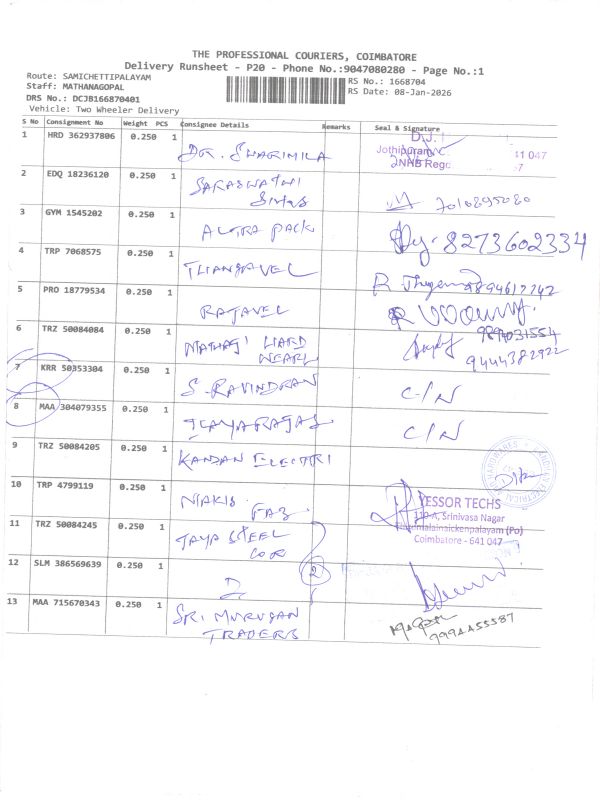 THE PROFESSIONAL COURIERS, COIMBATORE
Delivery Runsheet - P20 - Phone No.:9047080280 - Page No.:1
Route: SAMICHETTIPALAYAM
Staff: MATHANAGOPAL
DRS No.: DCJB166870401
Vehicle: Two Wheeler Delivery
RS No.: 1668704
RS Date: 08-Jan-2026
S No Consignment No Weight PCS Consignee Details Remarks Seal & Signature
1 HRD 362937806 0.250 1 DR. SHARIMILA
Jothipuram 41 047
2 EDQ 18236120 0.250 1 SARASWATHI
7010895080
3 GYM 1545202 0.250 1 ALTRA PACK 8273602334
4 TRP 7068575 0.250 1 THANGAVEL R 9894617742
5 PRO 18779534 0.250 1 RAJAVEL R
6 TRZ 50084084 0.250 1 HARD
9894031554
9444382922
7 KRR 50353304 0.250 1 S. RAVINDRAN C/N
8 MAA 304079355 0.250 1 ILAYARAJAS C/N
9 TRZ 50084205 0.250 1 KANDAN ELECTRI
10 TRP 4799119 0.250 1 FAB
ESSOR TECHS
110-A, Srinivasa Nagar
malainaickenpalayam (Po)
Coimbatore - 641 047
11 TRZ 50084245 0.250 1 JAYA STEEL
COR
12 SLM 386569639 0.250 1 2
13 MAA 715670343 0.250 1 SRI MURUGAN
TRADERS
9994455587